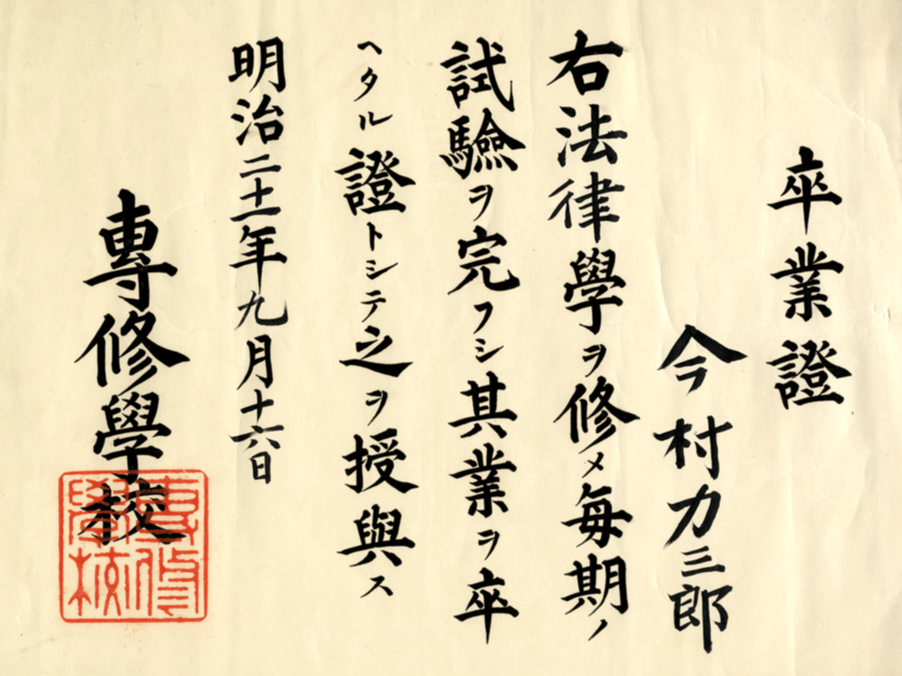 卒業證
今村力三郎
右法律學ヲ修メ毎期ノ
試驗ヲ完フシ其業ヲ卒
ヘタル證トシテ之ヲ授與ス
明治二十一年九月十六日
專修學校
專修
學校